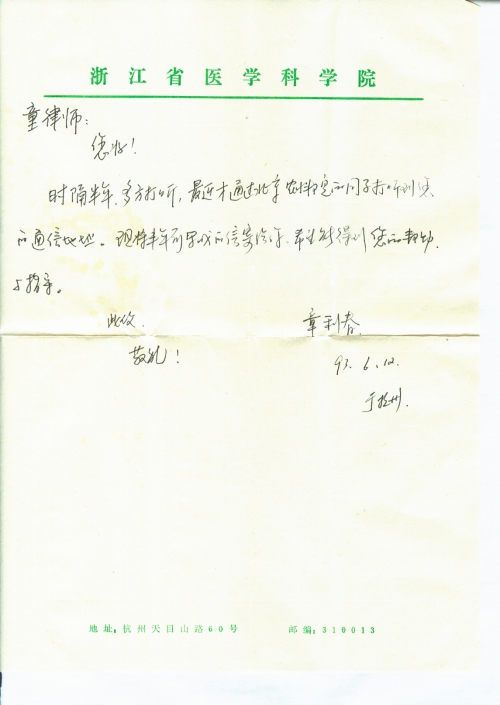 浙江省医学科学院
童律师:
您好!
时隔半年,多方打听,最近才通过北京农科院的同学打听到您
的通信地址。现将半年前写好的信寄给您,希望能得到您的帮助
与指导。
此致
章利春
敬礼!
93.6.12.
于杭州.
地址:杭州天目山路60号 邮编:310013